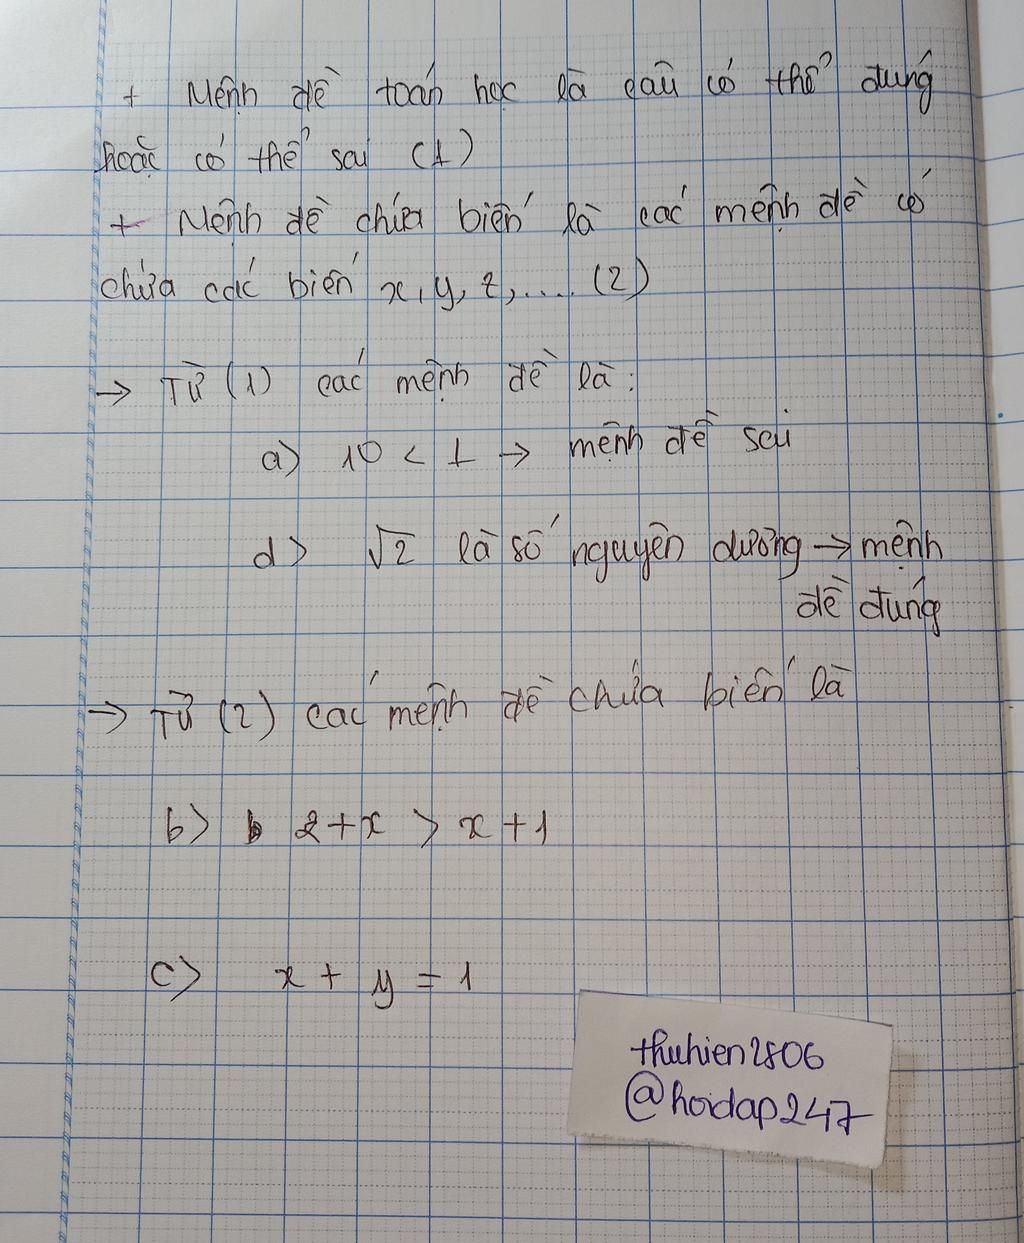 + Mệnh đề toán học là câu có thể đúng
hoặc có thể sai (1)
+ Mệnh đề chứa biến là các mệnh đề có
chứa các biến x, y, z, .... (2)
→ Từ (1) các mệnh đề là :
a) 10 < 1 → mệnh đề sai
d) √2 là số nguyên dương → mệnh
đề đúng
→ Từ (2) các mệnh đề chứa biến là
b) 2+x > x+1
c) x + y = 1
thuhien2806
@hoidap247